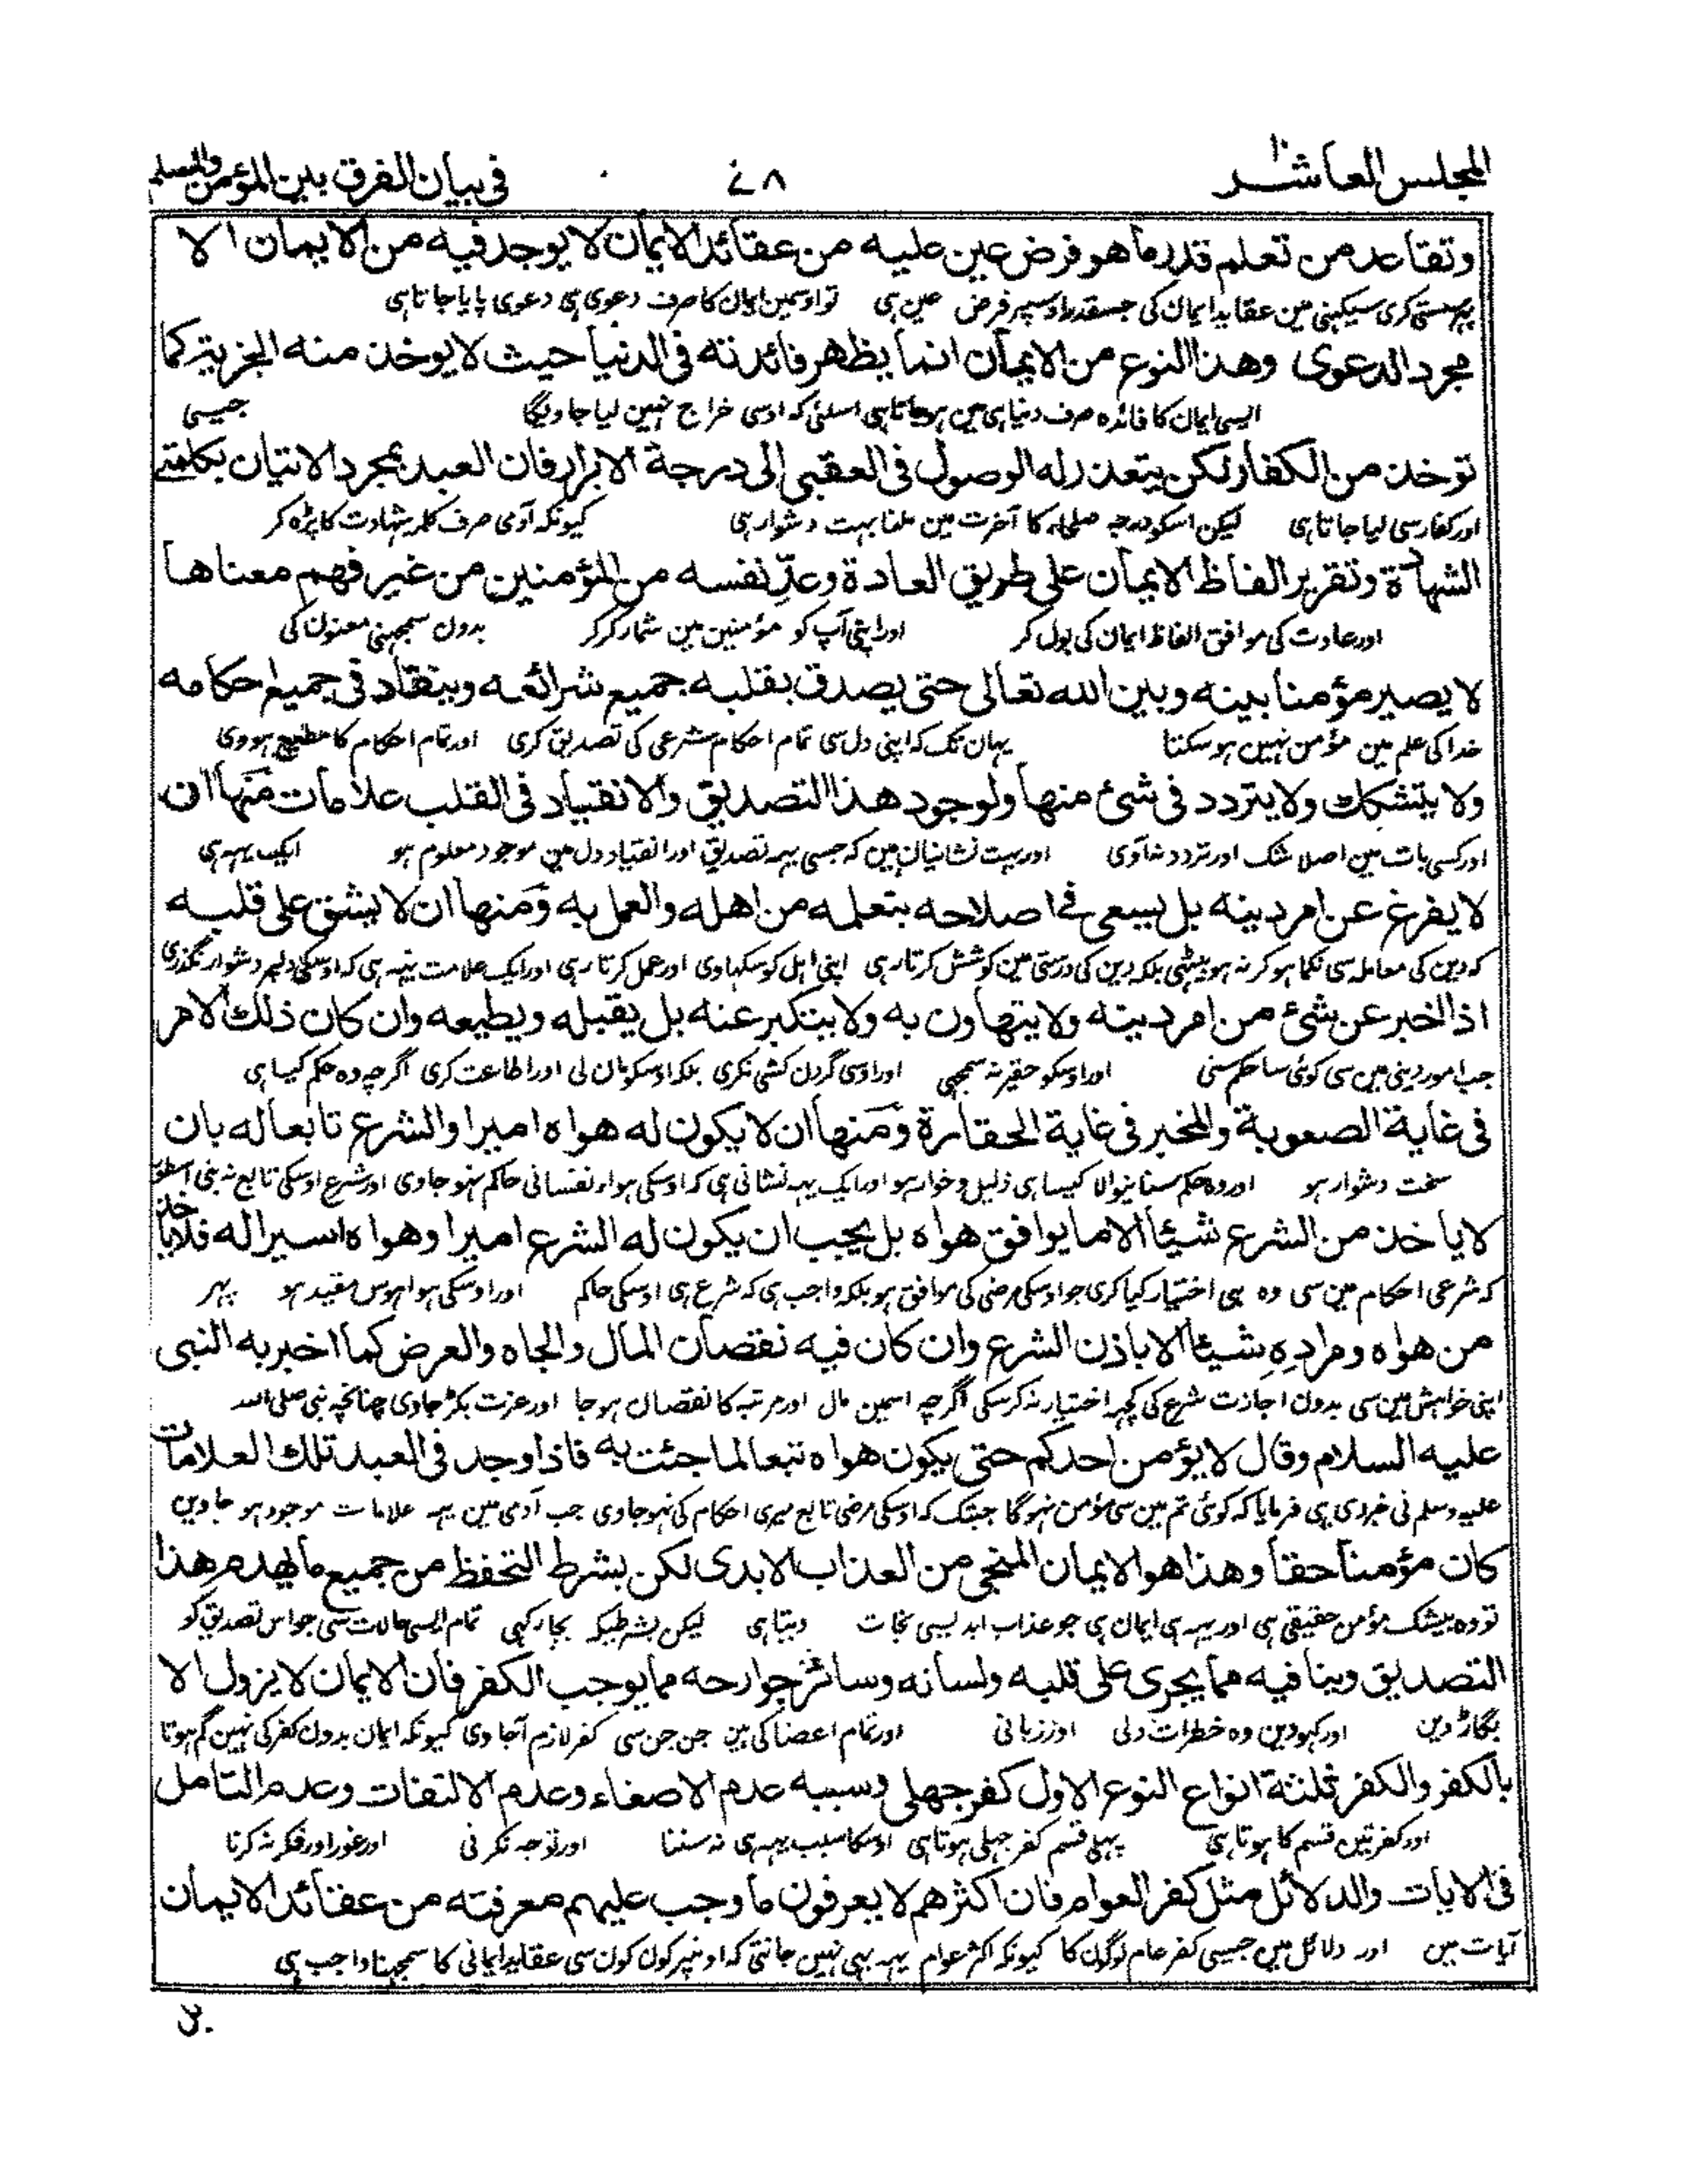 المجلس العاشر
٧٨
فى بيان الفرق بين المؤمن والمسلم
وتقاعد من تعلم قدر ما هو فرض عين عليه من عقائد الايمان لا يوجد فيه من الايمان الا
پهر سستى كرى سيكهنى مين عقايد ايمان كى جسقدر اوسپر فرض عين ہى تو اوسمين ايمان كا صرف دعوى ہى دعوى پايا جاتا ہى
مجرد الدعوى وهذا النوع من الايمان انما يظهر فائدته فى الدنيا حيث لا يوخذ منه الجزية كما
ايسى ايمان كا فائده صرف دنيا ہى مين ہو جاتا ہى اسلئى كه اوسى خراج نہين ليا جاويگا جيسى
توخذ من الكفار لكن يتعذر له الوصول فى العقبى الى درجة الابرار فان العبد بمجرد الاتيان بكلمتى
اور كفار سى ليا جاتا ہى ليكن اسكو درجه صلحاء كا آخرت مين ملنا بہت دشوار ہى كيونكه آدمى صرف كلمہ شہادت كا پڑه كر
الشهادة وتقرير الفاظ الايمان على طريق العادة وعدّ نفسه من المؤمنين من غير فهم معناها
اور عادت كى موافق الفاظ ايمان كى بول كر اور اپنى آپ كو مؤمنين مين شمار كركر بدون سمجهنى معنون كى
لا يصير مؤمنا بينه وبين الله تعالى حتى يصدق بقلبه جميع شرائعه وينقاد فى جميع احكامه
خدا كى علم مين مؤمن نہين ہو سكتا يہان تك كه اپنى دل سى تمام احكام شرعى كى تصديق كرى اور تمام احكام كا مطيع ہووى
ولا يتشكك ولا يتردد فى شئ منها ولوجود هذا التصديق والانقياد فى القلب علامات منها ان
اور كسى بات مين اصلا شك اور تردد نه آوى اور بہت نشانيان ہين كه جسى يہه تصديق اور انقياد دل مين موجود معلوم ہو ايك يہه ہى
لا يفرغ عن امر دينه بل يسعى فى اصلاحه بتعلمه من اهله والعمل به ومنها ان لا يشق على قلبه
كه دين كى معامله سى نكما ہو كر نه ہو بيٹہى بلكه دين كى درستى مين كوشش كرتا رہى اپنى اہل كو سكهاوى اور عمل كرتا رہى اور ايك علامت يہه ہى كه اوسكى دلپر دشوار نگذرى
اذا اخبر عن شئ من امر دينه ولا يتهاون به ولا يتكبر عنه بل يقبله ويطيعه وان كان ذلك الامر
جب امور دينى مين سى كوئى سا حكم سنى اور اوسكو حقير نه سمجهى اور اوسى گردن كشى نكرى بلكه اوسكو مان لى اور اطاعت كرى اگرچه وه حكم كيسا ہى
فى غاية الصعوبة والمخبر فى غاية الحقارة ومنها ان لا يكون له هواه اميرا والشرع تابعا له بان
سخت دشوار ہو اور وه حكم سنانيوالا كيسا ہى ذليل و خوار ہو اور ايك يہه نشانى ہى كه اوسكى ہواء نفسانى حاكم نہو جاوى اور شرع اوسكى تابع نه بنى
لا ياخذ من الشرع شيئا الا ما يوافق هواه بل يجب ان يكون له الشرع اميرا وهواه اسيرا له فلا ياخذ
كه شرعى احكام مين سى وه ہى اختيار كيا كرى جو اوسكى مرضى كى موافق ہو بلكه واجب ہى كه شرع ہى اوسكى حاكم اور اوسكى ہوا ہوس مقيد ہو پهر
من هواه ومرادِهِ شيئا الا باذن الشرع وان كان فيه نقصان المال والجاه والعرض كما اخبر به النبى
اپنى خواہش مين سى بدون اجازت شرع كى كچهه اختيار نه كر سكى اگرچه اسمين مال اور مرتبه كا نقصان ہو جا اور عزت بگڑ جاوى چنانچه نبى صلى الله
عليه السلام وقال لا يؤمن احدكم حتى يكون هواه تبعا لما جئت به فاذا وجد فى العبد تلك العلامات
عليه وسلم نى خبر دى ہى فرمايا كه كوئى تم مين سى مؤمن نہوگا جبتك كه اوسكى مرضى تابع ميرى احكام كى نہو جاوى جب آدمى مين يہه علامات موجود ہو جاوين
كان مؤمنا حقا وهذا هو الايمان المنجى من العذاب الابدى لكن بشرط التحفظ من جميع ما يهدم هذا
تو وه بيشك مؤمن حقيقى ہى اور يہه ہى ايمان ہى جو عذاب ابد ليسى نجات ديتا ہى ليكن بشرطيكه بچا ركهى تمام ايسى حالات سى جو اس تصديق كو
التصديق وينافيه مما يجرى على قلبه ولسانه وسائر جوارحه مما يوجب الكفر فان الايمان لا يزول الا
بگاڑ دين اور كهودين وه خطرات دلى اور زبانى اور تمام اعضا كى ہين جن جن سى كفر لازم آجاوى كيونكه ايمان بدون كفر كى نہين گم ہوتا
بالكفر والكفر ثلثة انواع النوع الاول كفر جهلى وسببه عدم الاصغاء وعدم الالتفات وعدم التامل
اور كفر تين قسم كا ہوتا ہى پہلى قسم كفر جہلى ہوتا ہى اوسكا سبب يہه ہى نه سننا اور توجه نكرنى اور غور اور فكر نه كرنا
فى الايات والدلائل مثل كفر العوام فان اكثرهم لا يعرفون ما وجب عليهم معرفته من عقائد الايمان
آيات مين اور دلائل مين جيسى كفر عام لوگون كا كيونكه اكثر عوام يہه بہى نہين جانتى كه اونپر كون كون سى عقايد ايمانى كا سمجهنا واجب ہى